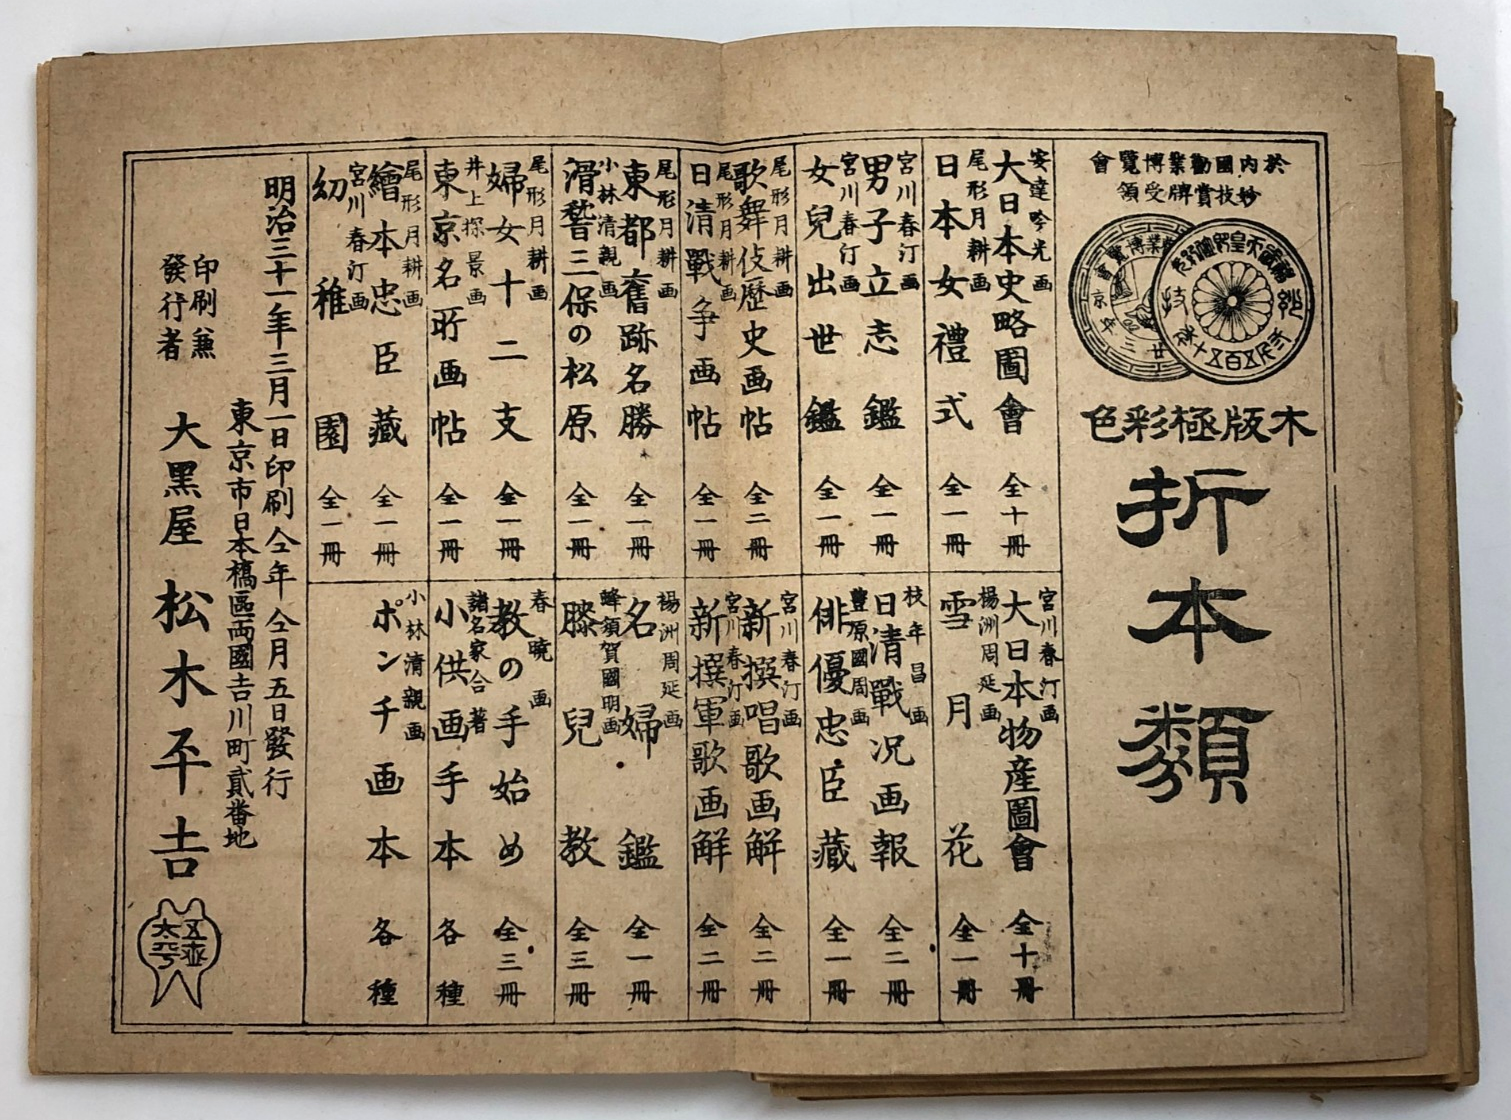 於内國勸業博覽會
妙技賞牌受領
木版極彩色
折本類
安達吟光画
大日本史略圖會 全十冊
尾形月耕画
日本女禮式 全一冊
宮川春汀画
男子立志鑑 全一冊
宮川春汀画
女兒出世鑑 全一冊
尾形月耕画
歌舞伎歷史画帖 全二冊
尾形月耕画
日清戰争画帖 全一冊
尾形月耕画
東都舊跡名勝 全一冊
小林清親画
滑稽三保の松原 全一冊
尾形月耕画
婦女十二支 全一冊
井上探景画
東京名所画帖 全一冊
尾形月耕画
繪本忠臣藏 全一冊
宮川春汀画
幼稚園 全一冊
宮川春汀画
大日本物産圖會 全十冊
楊洲周延画
雪月花 全一冊
枝年昌画
日清戰况画報 全二冊
豊原國周画
俳優忠臣藏 全一冊
宮川春汀画
新撰唱歌画解 全二冊
宮川春汀画
新撰軍歌画解 全二冊
楊洲周延画
名婦鑑 全一冊
蜂須賀國明画
膝兒教 全三冊
春暁画
教の手始め 全三冊
諸名家合著
小供画手本 各種
小林清親画
ポンチ画本 各種
明治三十一年三月一日印刷仝年仝月五日發行
東京市日本橋區両國吉川町貳番地
印刷兼
發行者
大黒屋 松木平吉